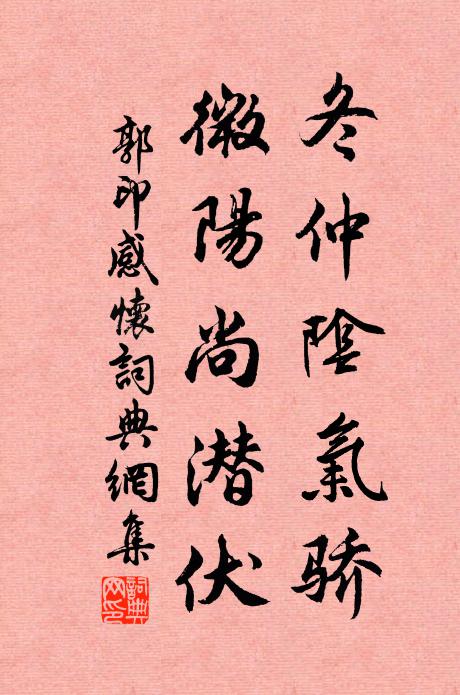 冬仲陰氣骄
微陽尚潜伏
郭印感懷詞典網集
詞典
网印